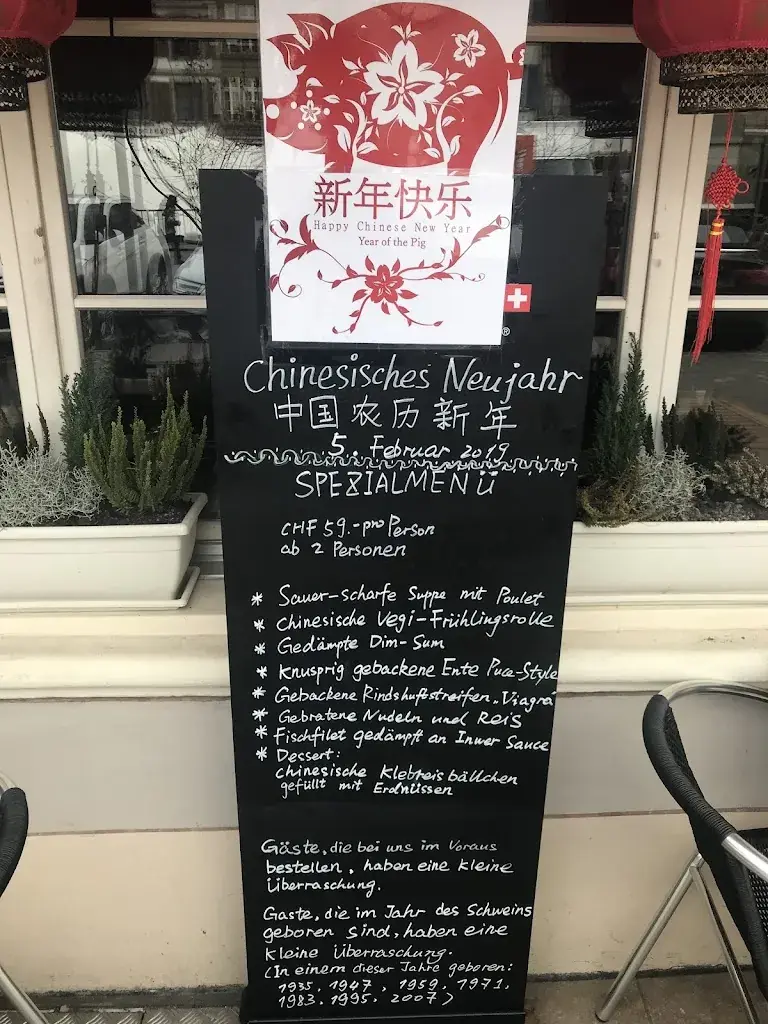 新年快乐
Happy Chinese New Year
Year of the Pig
®
Chinesisches Neujahr
中国农历新年
5. Februar 2019
SPEZIALMENÜ
CHF 59.- pro Person
ab 2 Personen
* Sauer-scharfe Suppe mit Poulet
* Chinesische Vegi-Frühlingsrolle
* Gedämpte Dim-Sum
* Knusprig gebackene Ente Puce-Style
* Gebackene Rindshuftstreifen „Viagra
* Gebratene Nudeln und Reis
* Fischfilet gedämpft an Inwer Sauce
* Dessert:
chinesische Klebreisbällchen
gefüllt mit Erdnüssen
Gäste, die bei uns im Voraus
bestellen, haben eine kleine
Überraschung.
Gäste, die im Jahr des Schweins
geboren sind, haben eine
kleine Überraschung.
(In einem dieser Jahre geboren:
1935, 1947, 1959, 1971,
1983, 1995, 2007)